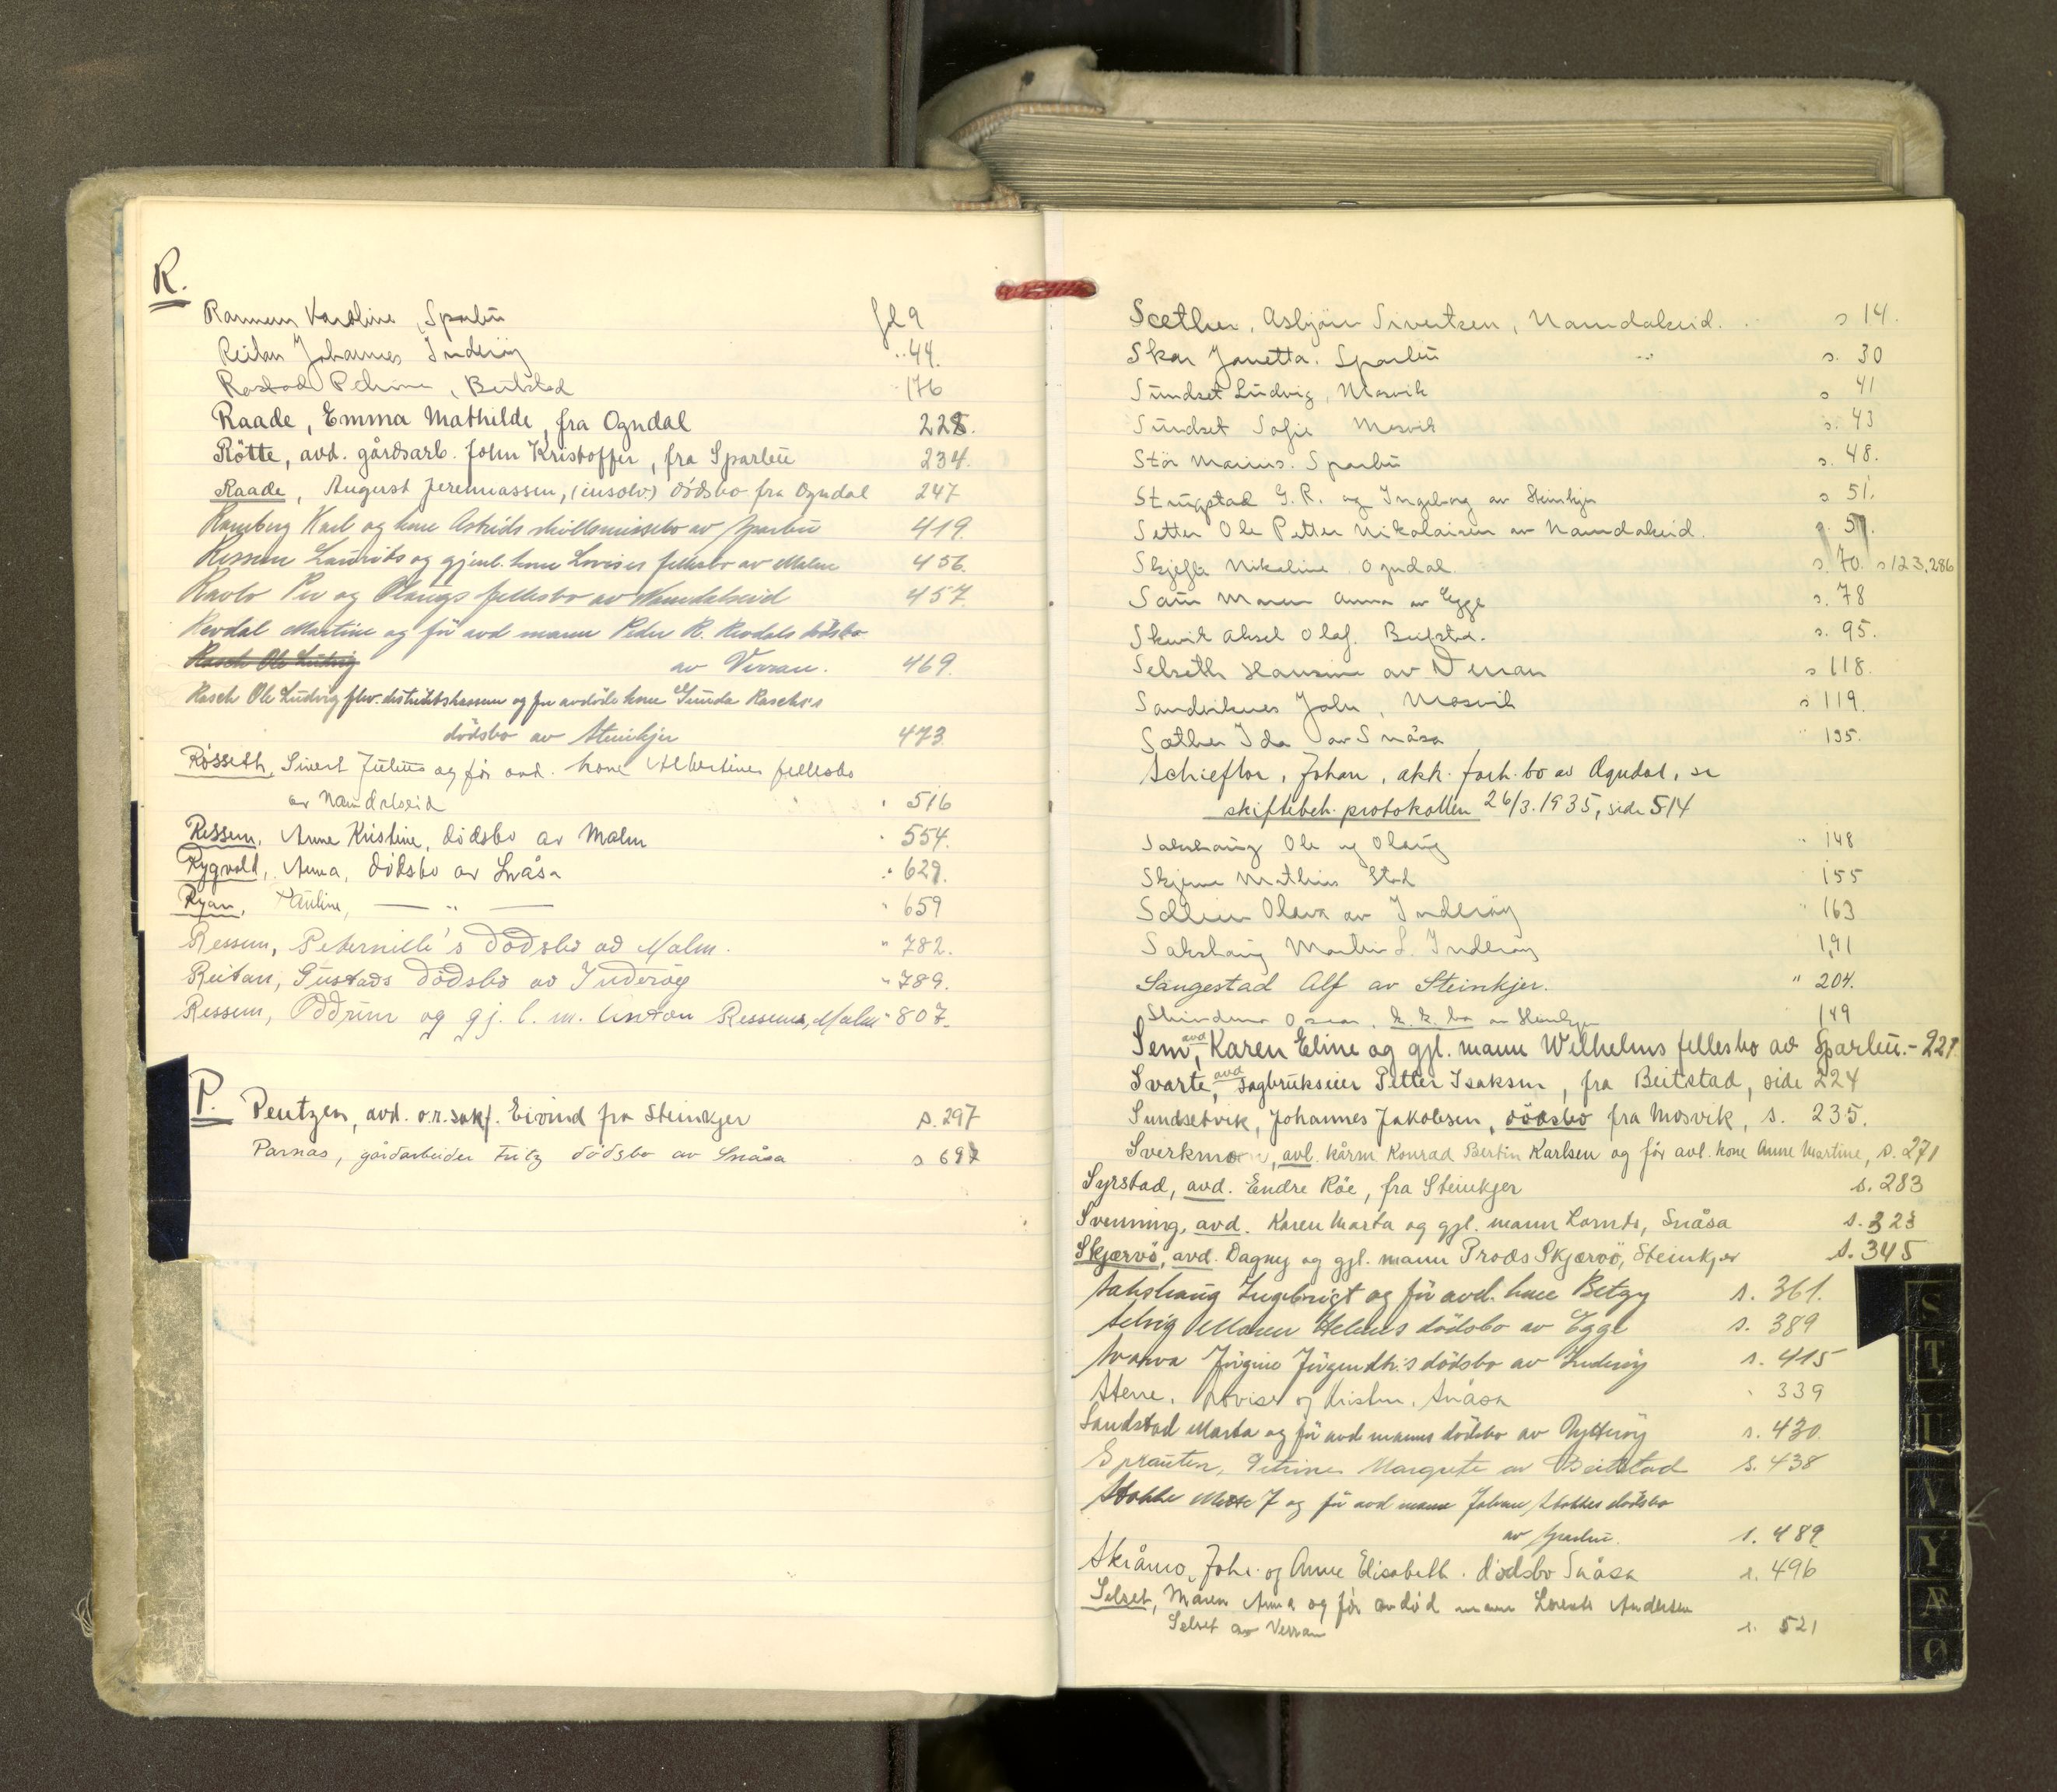 R.
Ramem Karoline, Sparbu fol 9
Reitan Johannes Inderøy " 44.
Rostad Petrine, Beitstad " 176
Raade, Emma Mathilde, fra Ogndal 228.
Rötte, avd. gårdsarb. John Kristoffer, fra Sparbu 234.
Raade, August Jeremiassen, (insolv.) dödsbo fra Ogndal 247
Ramberg Karl og kone Astrids skilsmissebo av Sparbu 419.
Ressem Laurits og gjenl. kone Lovises fellesbo av Malm 456.
Ravlo Per og Olaugs fellesbo av Namdalseid 457.
Revdal Martine og før avd mann Peder R. Revdals dödsbo
Rasch Ole Ludvig av Verran. 469.
Rasch Ole Ludvig fhv. distriktskasserer og før avdöde kone Gunda Rasch's
dödsbo av Steinkjer 473
Rösseth, Sivert Julius og før avd. kone Albertines fellesbo
av Namdalseid " 516
Ressem, Anne Kristine, dödsbo av Malm " 554.
Rygvold, Anna, dödsbo av Snåsa " 629.
Ryan, Pauline, — " — " 659
Ressem, Peternille's dödsbo av Malm. " 782.
Reitan, Gustavs dödsbo av Inderöy " 789.
Ressem, Oddrun og gj. l. m. Anton Ressems, Malm " 807.
P.
Pentzen, avd. o.r.sakf. Eivind fra Steinkjer s. 297
Parnas, gårdarbeider Fritz dödsbo av Snåsa s 697
Scether, Asbjörn Sivertsen, Namdalseid. s 14.
Skar Janetta. Sparbu s. 30
Sundset Ludvig, Mosvik s 41
Sundset Sofie Mosvik s. 43
Stör Marius. Sparbu s. 48.
Strugstad G. R. og Ingeborg av Steinkjer s 51.
Setter Ole Petter Nikolaisen av Namdalseid. s. 57.
Skjefte Nikoline Ogndal s. 70. s 123, 286
Saur Maren Anna av Egge s. 78
Skevik Aksel Olaf. Beitstad. s. 95.
Selseth Hansine av Verran s 118.
Sandviknes John, Mosvik s 119.
Sæther Ida av Snåsa " 135.
Schieflor, Johan, akk. forh. bo av Ogndal, se
skiftebeh. protokollen 26/3.1935, side 514
Sakshaug Ole og Olaug " 148
Skjerve Mathias Stod 155
Schlien Olava av Inderöy " 163
Sakshaug Martin L. Inderöy 191
Sangestad Alf av Steinkjer. " 204.
Oscar, k. k. bo av Steinkjer 149
Sem, avd Karen Eline og gjl. mann Wilhelms fellesbo av Sparbu. - 221
Svarte, avd sagbrukseier Petter Isaksen, fra Beitstad, side 224
Sundsetvik, Johannes Jakobsen, dödsbo fra Mosvik, s. 235.
Sverkmoen, avl. kårm Konrad Bertin Karlsen og för avl. kone Anne Martine, s. 271
Syrstad, avd. Endre Röe, fra Steinkjer s. 283
Svenning, avd. Karen Marta og gjl. mann Lornts, Snåsa s. 323
Skjærvö, avd. Dagny og gjl. mann Trods Skjærvö, Steinkjer s. 345
Sakshaug Ingebrigt og för avd. kone Betzy s. 361.
Selvig Maren Helenes dödsbo av Egge s. 389
Svarva Jörgine Jörgendtr.'s dödsbo av Inderöy s. 415
Stene, Lovise og Kristen, Snåsa " 339
Sandstad Marta og för avd manns dödsbo av Ytteröy s. 430
Sprauten, Petrine Margrete av Beitstad s. 438
Stokke Mette J og för avd mann Johan Stokkes dödsbo
av Sparbu. s. 489
Skråmo, Johs. og Anne Elisabeth. dödsbo Snåsa s. 496
Selset, Maren Anna og för avdöd mann Lorents Andersen
Selset av Verran s. 521
S
T
U
V
Y
Æ
Ø